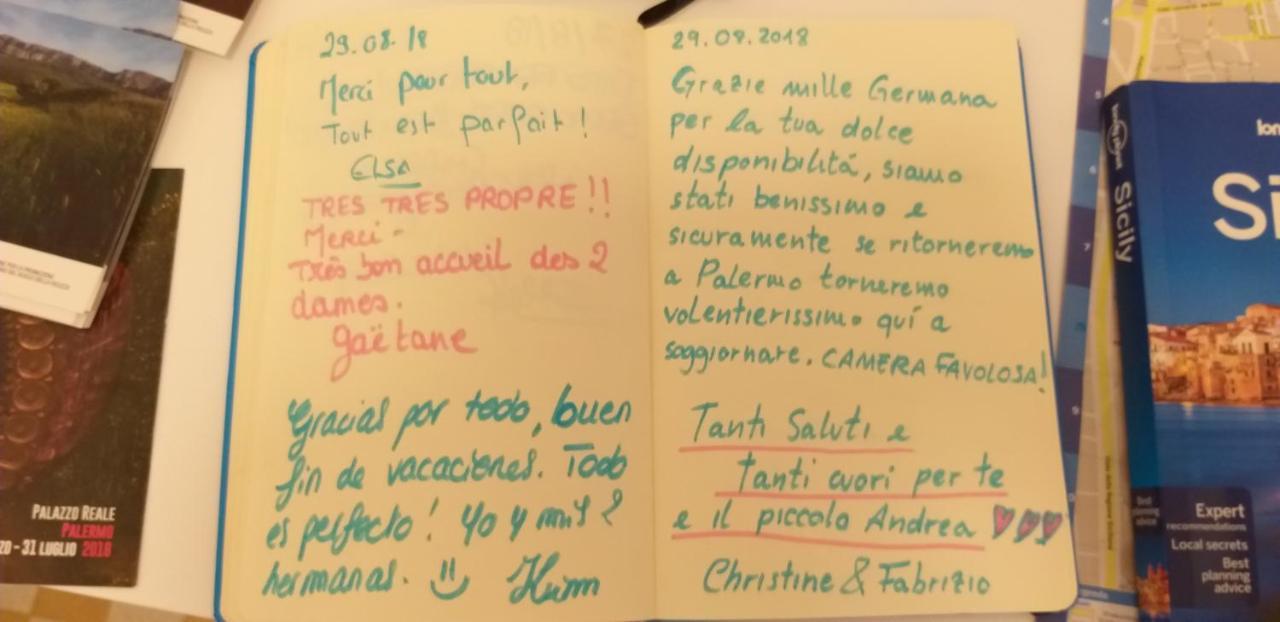 29.08.18
Merci pour tout,
Tout est parfait !
ELSA
TRES TRES PROPRE !!
Merci -
Très bon accueil des 2
dames.
Gaëtane
Gracias por todo, buen
fin de vacaciones. Todo
es perfecto ! Yo y mis 2
hermanas.
29.08.2018
Grazie mille Germana
per la tua dolce
disponibilitá, siamo
stati benissimo e
sicuramente se ritorneremo
a Palermo torneremo
volentierissimo quí a
soggiornare. CAMERA FAVOLOSA!
Tanti Saluti e
tanti cuori per te
e il piccolo Andrea
Christine & Fabrizio
PALAZZO REALE
PALERMO
ZO - 31 LUGLIO 2018
lonely planet
Sicily
lon
Si
Expert
recommendations
Local secrets
Best
planning
advice